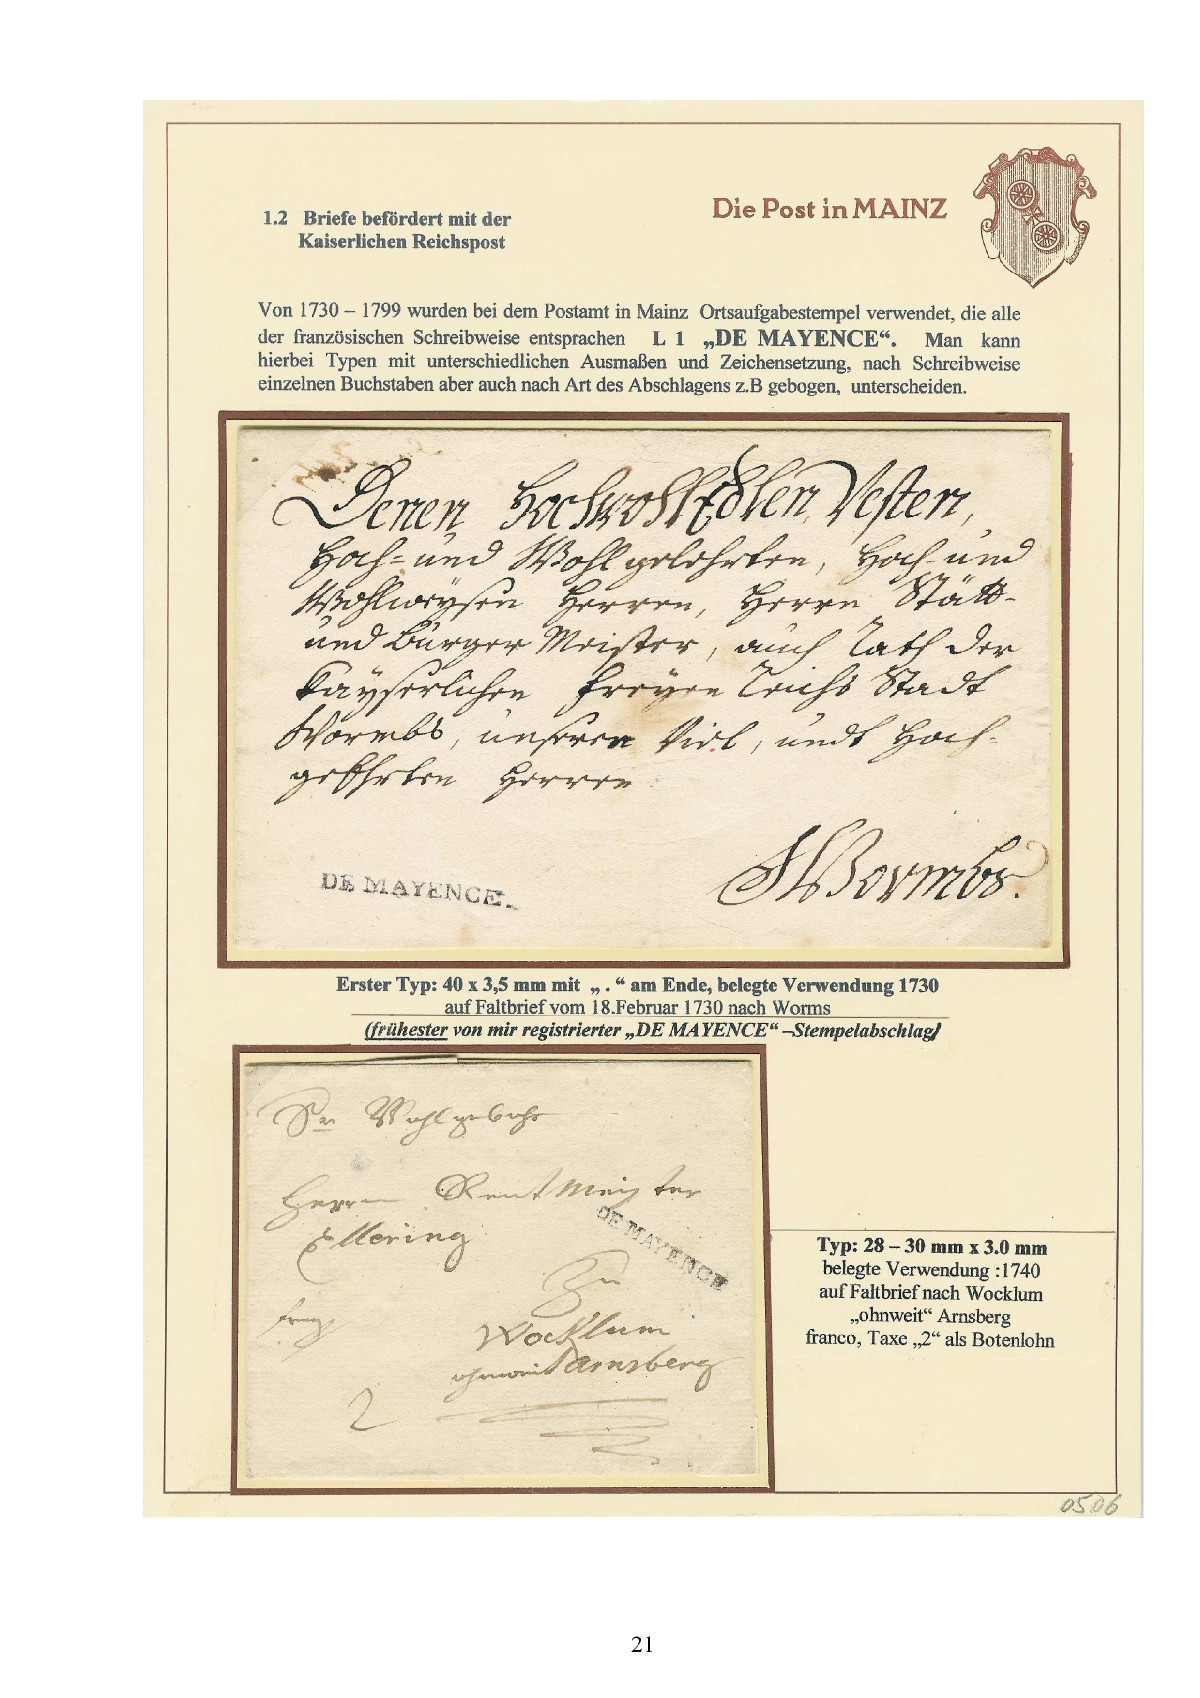 Die Post in MAINZ
1.2 Briefe befördert mit der
Kaiserlichen Reichspost
Von 1730 – 1799 wurden bei dem Postamt in Mainz Ortsaufgabestempel verwendet, die alle
der französischen Schreibweise entsprachen L 1 „DE MAYENCE“. Man kann
hierbei Typen mit unterschiedlichen Ausmaßen und Zeichensetzung, nach Schreibweise
einzelnen Buchstaben aber auch nach Art des Abschlagens z.B gebogen, unterscheiden.
Denen HochwohlEdlen, Vesten,
Hoch- und Wohlgelehrten, Hoch- und
Wohlweysen Herren, Herrn Stätt-
und Bürger Meister, auch Rath der
Kayserlichen freyen Reichs Stadt
Wormbs, unseren Viel, undt Hoch-
geEhrten Herren
Wormbs.
DE MAYENCE.
Erster Typ: 40 x 3,5 mm mit „ . “ am Ende, belegte Verwendung 1730
auf Faltbrief vom 18.Februar 1730 nach Worms
(frühester von mir registrierter „DE MAYENCE“ –Stempelabschlag)
Wohlgebohr
Herrn Rentmeister
DE MAYENCE
Ellering
Zu
Wocklum
ohnweit Arnsberg
2
Typ: 28 – 30 mm x 3.0 mm
belegte Verwendung :1740
auf Faltbrief nach Wocklum
„ohnweit“ Arnsberg
franco, Taxe „2“ als Botenlohn
0506
21